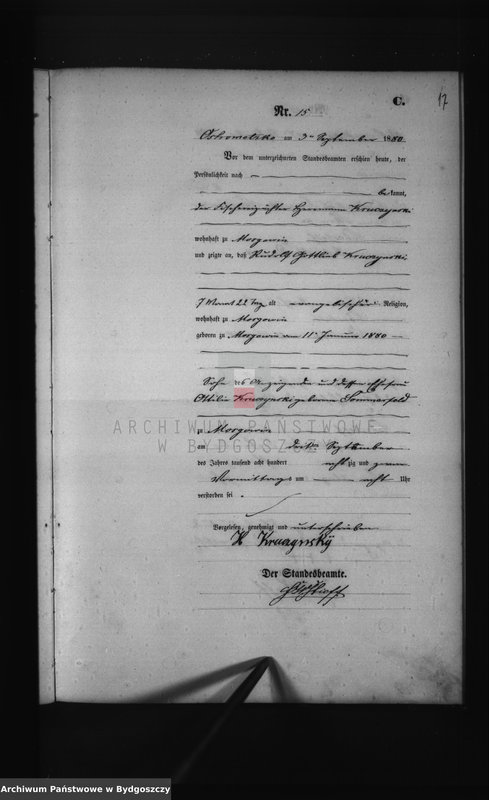 C.
17
Nr. 15
Ostrometzko am 3ten September 1880.
Vor dem unterzeichneten Standesbeamten erschien heute, der
Persönlichkeit nach
bekannt,
der Fischereipächter Hermann
wohnhaft zu
und zeigte an, daß Rudolf Gottlieb
7 Monat 22 Tag alt evangelischer Religion,
wohnhaft zu
geboren zu am 11ten Januar 1880
Sohn des Anzeigenden und dessen Ehefrau
Ottilie geborene Sommerfeld
ARCHIWUM PAŃSTWOWE
W BYDGOSZCZY
zu
am dritten September
des Jahres tausend acht hundert achtzig und
Vormittags um acht Uhr
verstorben sei.
Vorgelesen, genehmigt und unterschrieben
H
Der Standesbeamte.
Archiwum Państwowe w Bydgoszczy